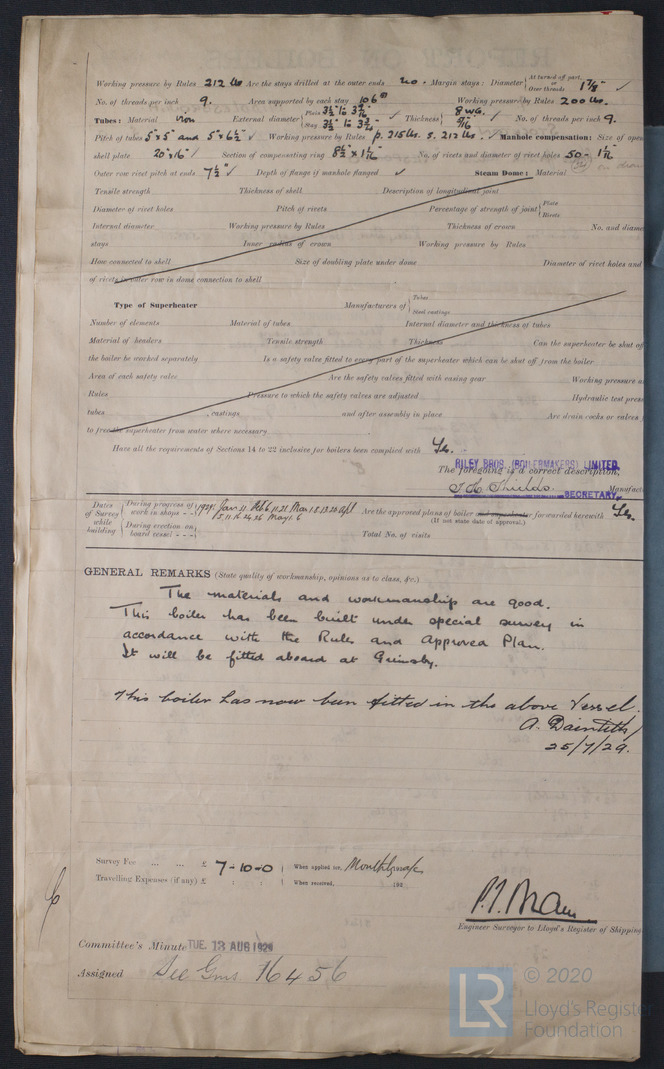 Working pressure by Rules 212 lbs Are the stays drilled at the outer ends No. Margin stays: Diameter { At turned off part, or Over threads 1 7/8" ✓
No. of threads per inch 9. Area supported by each stay 106 Working pressure by Rules 200 lbs.
Tubes: Material Iron External diameter { Plain 3½" Stay 3½" Thickness { 8 WG. 5/16 ✓ No. of threads per inch 9
Pitch of tubes 5"x5" and 5"x6½" ✓ Working pressure by Rules p. 215 lbs. s. 212 lbs. Manhole compensation: Size of open
shell plate 20"x16" Section of compensating ring 8½" x 1 1/16" No. of rivets and diameter of rivet holes 50 - 1 1/16"
Outer row rivet pitch at ends 7½" ✓ Depth of flange if manhole flanged ✓ Steam Dome: Material
Tensile strength Thickness of shell Description of longitudinal joint
Diameter of rivet holes Pitch of rivets Percentage of strength of joint { Plate Rivets
Internal diameter Working pressure by Rules Thickness of crown No. and diame
stays Inner radius of crown Working pressure by Rules
How connected to shell Size of doubling plate under dome Diameter of rivet holes and
of rivets in outer row in dome connection to shell
Type of Superheater Manufacturers of { Tubes Steel castings
Number of elements Material of tubes Internal diameter and thickness of tubes
Material of headers Tensile strength Thickness Can the superheater be shut of
the boiler be worked separately Is a safety valve fitted to every part of the superheater which can be shut off from the boiler
Area of each safety valve Are the safety valves fitted with easing gear Working pressure a
Rules Pressure to which the safety valves are adjusted Hydraulic test press
tubes , castings and after assembly in place Are drain cocks or valves
to free the superheater from water where necessary
Have all the requirements of Sections 14 to 22 inclusive for boilers been complied with Yes.
RILEY BROS. (BOILERMAKERS) LIMITED.
The foregoing is a correct description,
Shields. SECRETARY. Manufact
Dates of Survey while building { During progress of work in shops - - 1929: Jan 11. Feb 6.11.21. Mar 1.8.13.20 Apl 5.11.16.24.26 May 1.6 Are the approved plans of boiler and superheater forwarded herewith Yes.
(If not state date of approval.)
During erection on board vessel - - - Total No. of visits
GENERAL REMARKS (State quality of workmanship, opinions as to class, &c.)
The materials and workmanship are good.
This boiler has been built under special survey in
accordance with the Rules and Approved Plan.
It will be fitted aboard at Grimsby.
This boiler has now been fitted in the above Vessel.
A. Daintith
25/7/29.
Survey Fee ... ... £ 7-10-0 When applied for, Monthly a/c
Travelling Expenses (if any) £ : : When received, 192
Engineer Surveyor to Lloyd's Register of Shipping
Committee's Minute TUE. 13 AUG 1929
Assigned See Gms 16456
LR © 2020
Lloyd's Register
Foundation